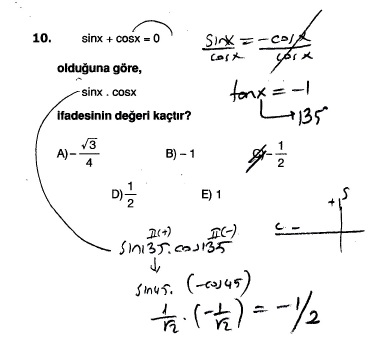 10. sinx + cosx = 0
olduğuna göre,
sinx . cosx
ifadesinin değeri kaçtır?
A) -√3/4 B) - 1 C) -1/2
D) 1/2 E) 1
sinx/cosx = -cosx/cosx
tanx = -1
135
II(+) II(-)
sin135 . cos135
sin45 . (-cos45)
1/√2 . (-1/√2) = -1/2
+ S
C -